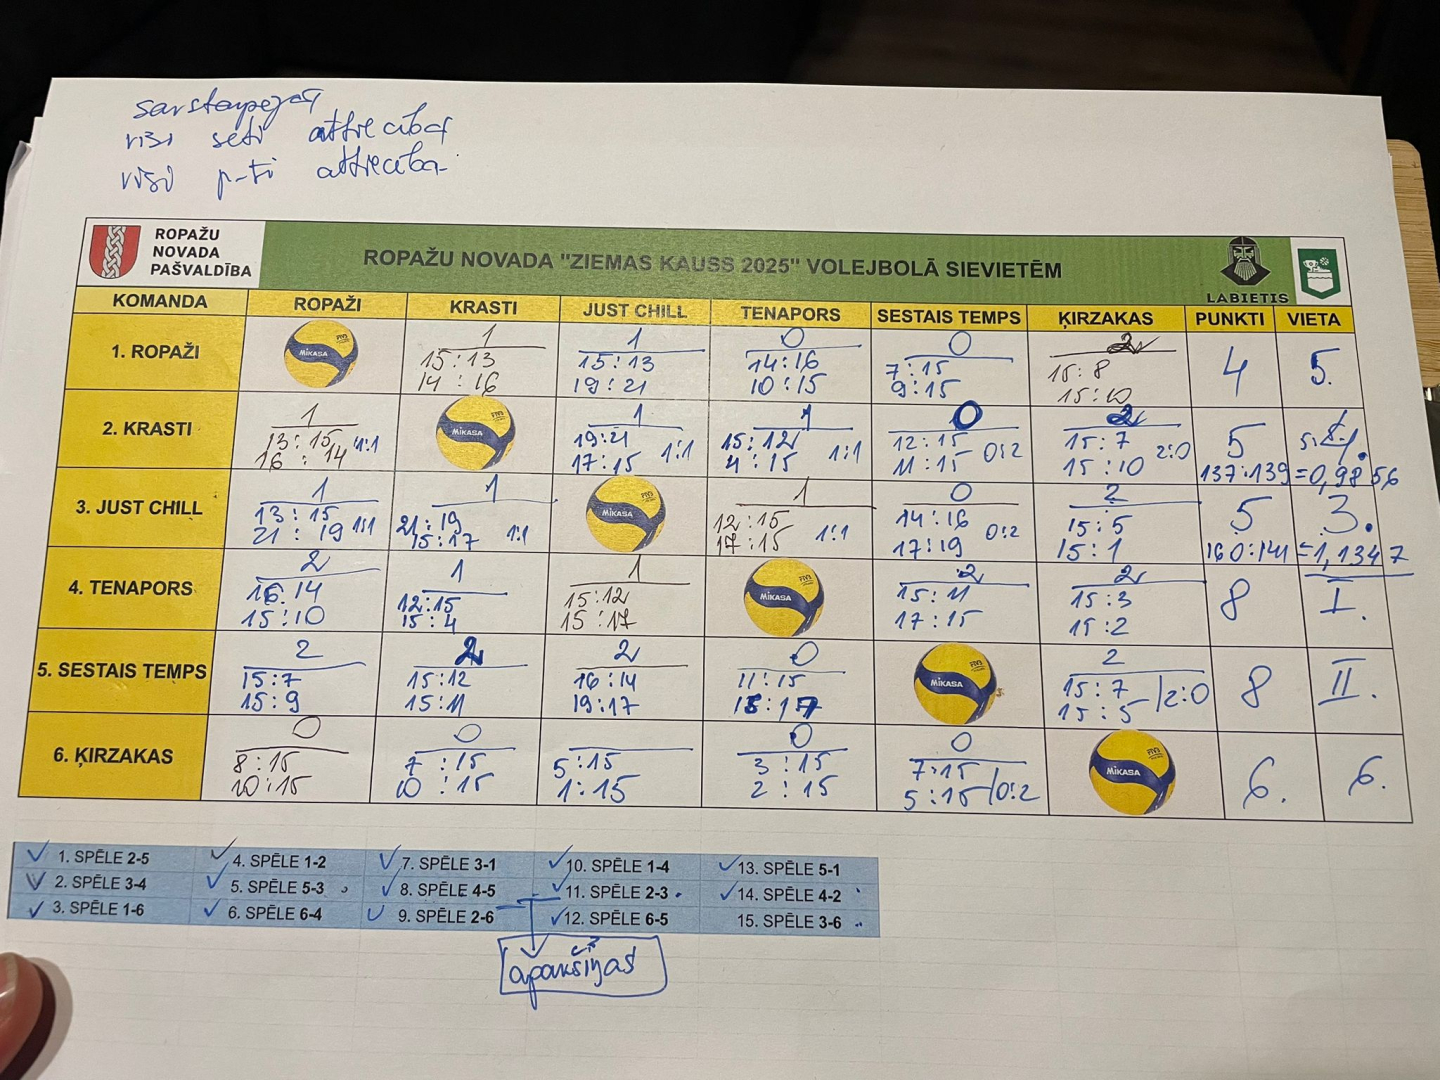 savstarpējā
visi seti attiecība
visi p-ti attiecība.
ROPAŽU
NOVADA
PAŠVALDĪBA
ROPAŽU NOVADA "ZIEMAS KAUSS 2025" VOLEJBOLĀ SIEVIETĒM
LABIETIS
KOMANDA ROPAŽI KRASTI JUST CHILL TENAPORS SESTAIS TEMPS ĶIRZAKAS PUNKTI VIETA
1. ROPAŽI MIKASA 1 1 0 0 2 4 5.
15:13 15:13 14:16 7:15 15:8
14:16 19:21 10:15 9:15 15:10
2. KRASTI 1 MIKASA 1 1 0 2 5
13:15 1:1 19:21 1:1 15:12 1:1 12:15 0:2 15:7 2:0
16:14 17:15 4:15 11:15 15:10 137:139 =0,9856
3. JUST CHILL 1 1 MIKASA 1 0 2 5 3.
13:15 1:1 21:19 1:1 12:15 1:1 14:16 0:2 15:5
21:19 15:17 17:15 17:19 15:1 160:141 =1,1347
4. TENAPORS 2 1 1 MIKASA 2 2 8 I.
16:14 12:15 15:12 15:11 15:3
15:10 15:4 15:17 17:15 15:2
5. SESTAIS TEMPS 2 2 2 0 MIKASA 2 8 II.
15:7 15:12 16:14 11:15 15:7 2:0
15:9 15:11 19:17 15:17 15:5
6. ĶIRZAKAS 0 0 0 0 MIKASA 6. 6.
8:15 7:15 5:15 3:15 7:15 0:2
10:15 10:15 1:15 2:15 5:15
1. SPĒLE 2-5 4. SPĒLE 1-2 7. SPĒLE 3-1 10. SPĒLE 1-4 13. SPĒLE 5-1
2. SPĒLE 3-4 5. SPĒLE 5-3 8. SPĒLE 4-5 11. SPĒLE 2-3 14. SPĒLE 4-2
3. SPĒLE 1-6 6. SPĒLE 6-4 9. SPĒLE 2-6 12. SPĒLE 6-5 15. SPĒLE 3-6
apakšiņas